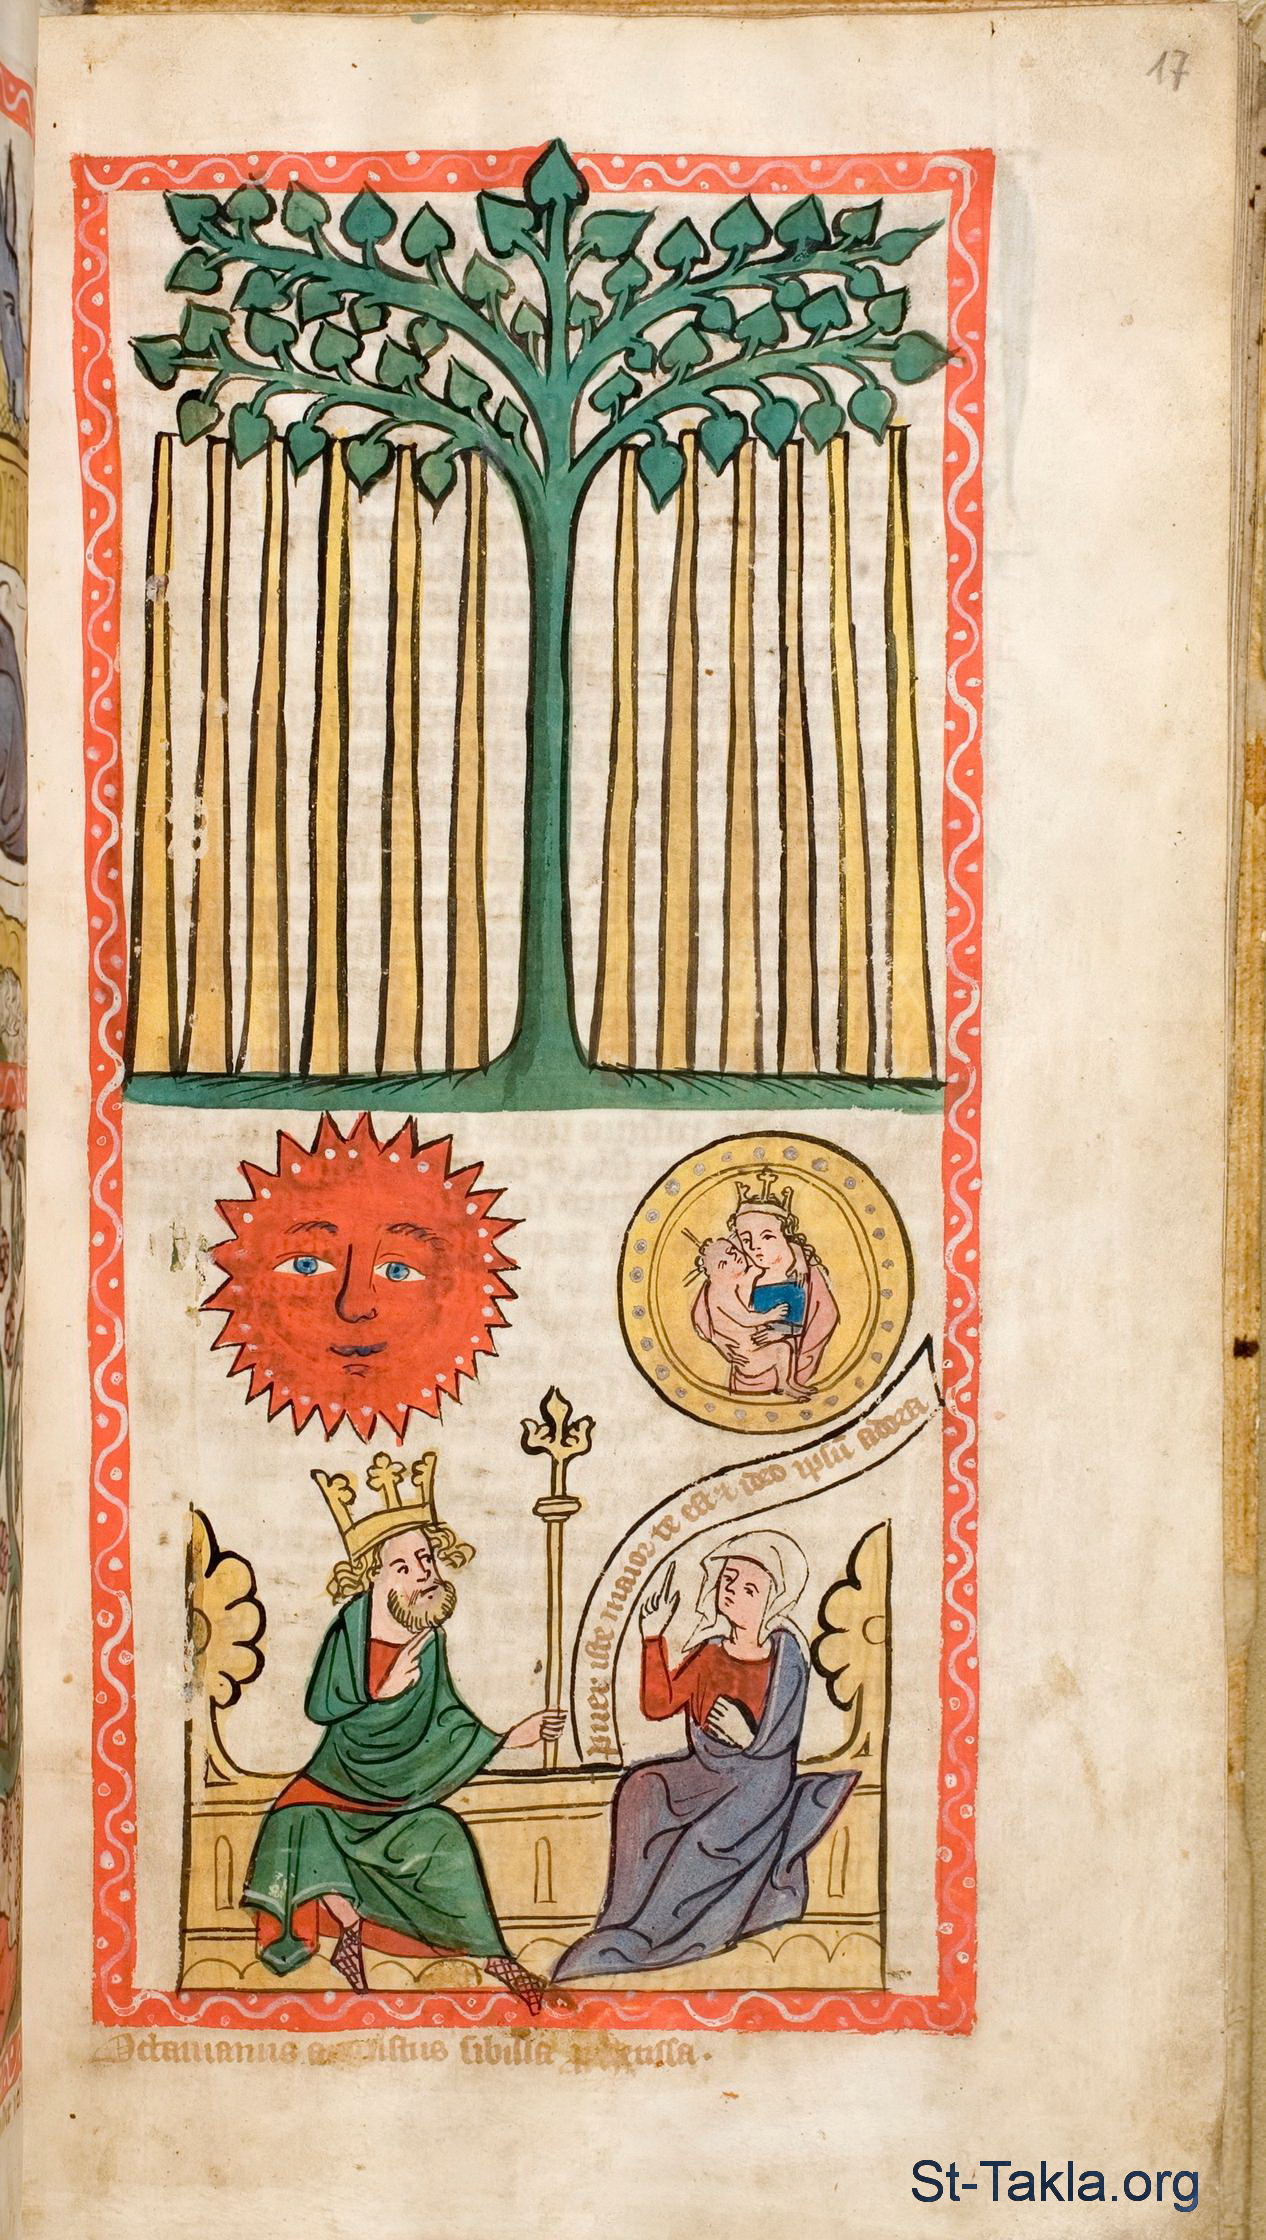 17
puer iste maior te est ⁊ ideo ipsū adora
Octauianus sibilla
St-Takla.org